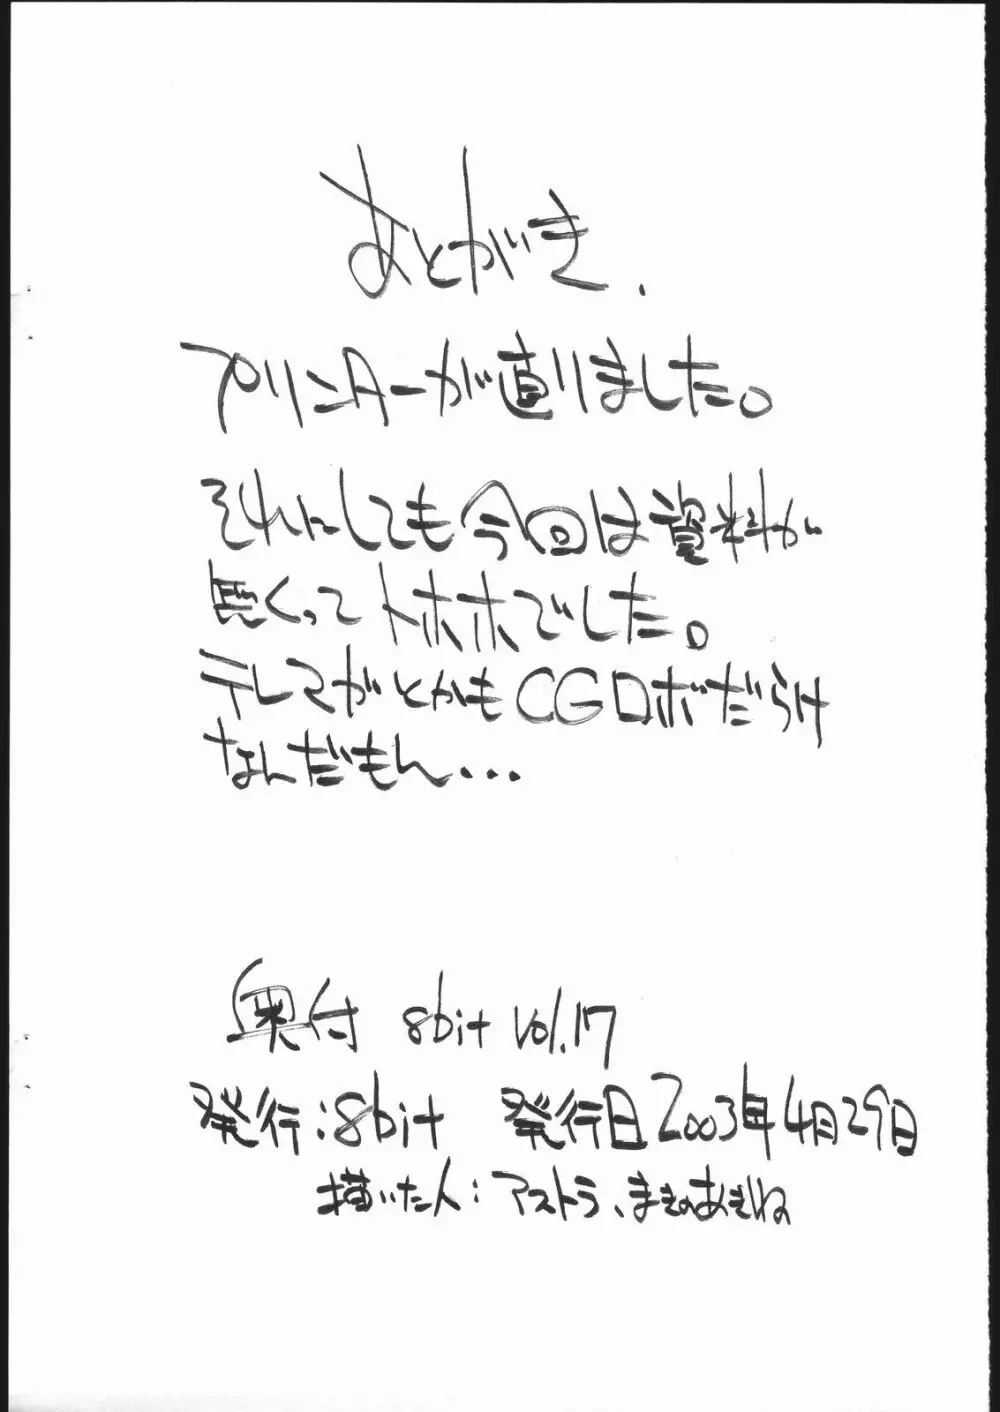 あとがき.
プリンターが直りました。
それにしても今回は資料が
無くってトホホでした。
テレマガとかもCGロボだらけ
なんだもん...
奥付 8bit Vol.17
発行:8bit 発行日2003年4月29日
描いた人:アストラ、まきのあきね